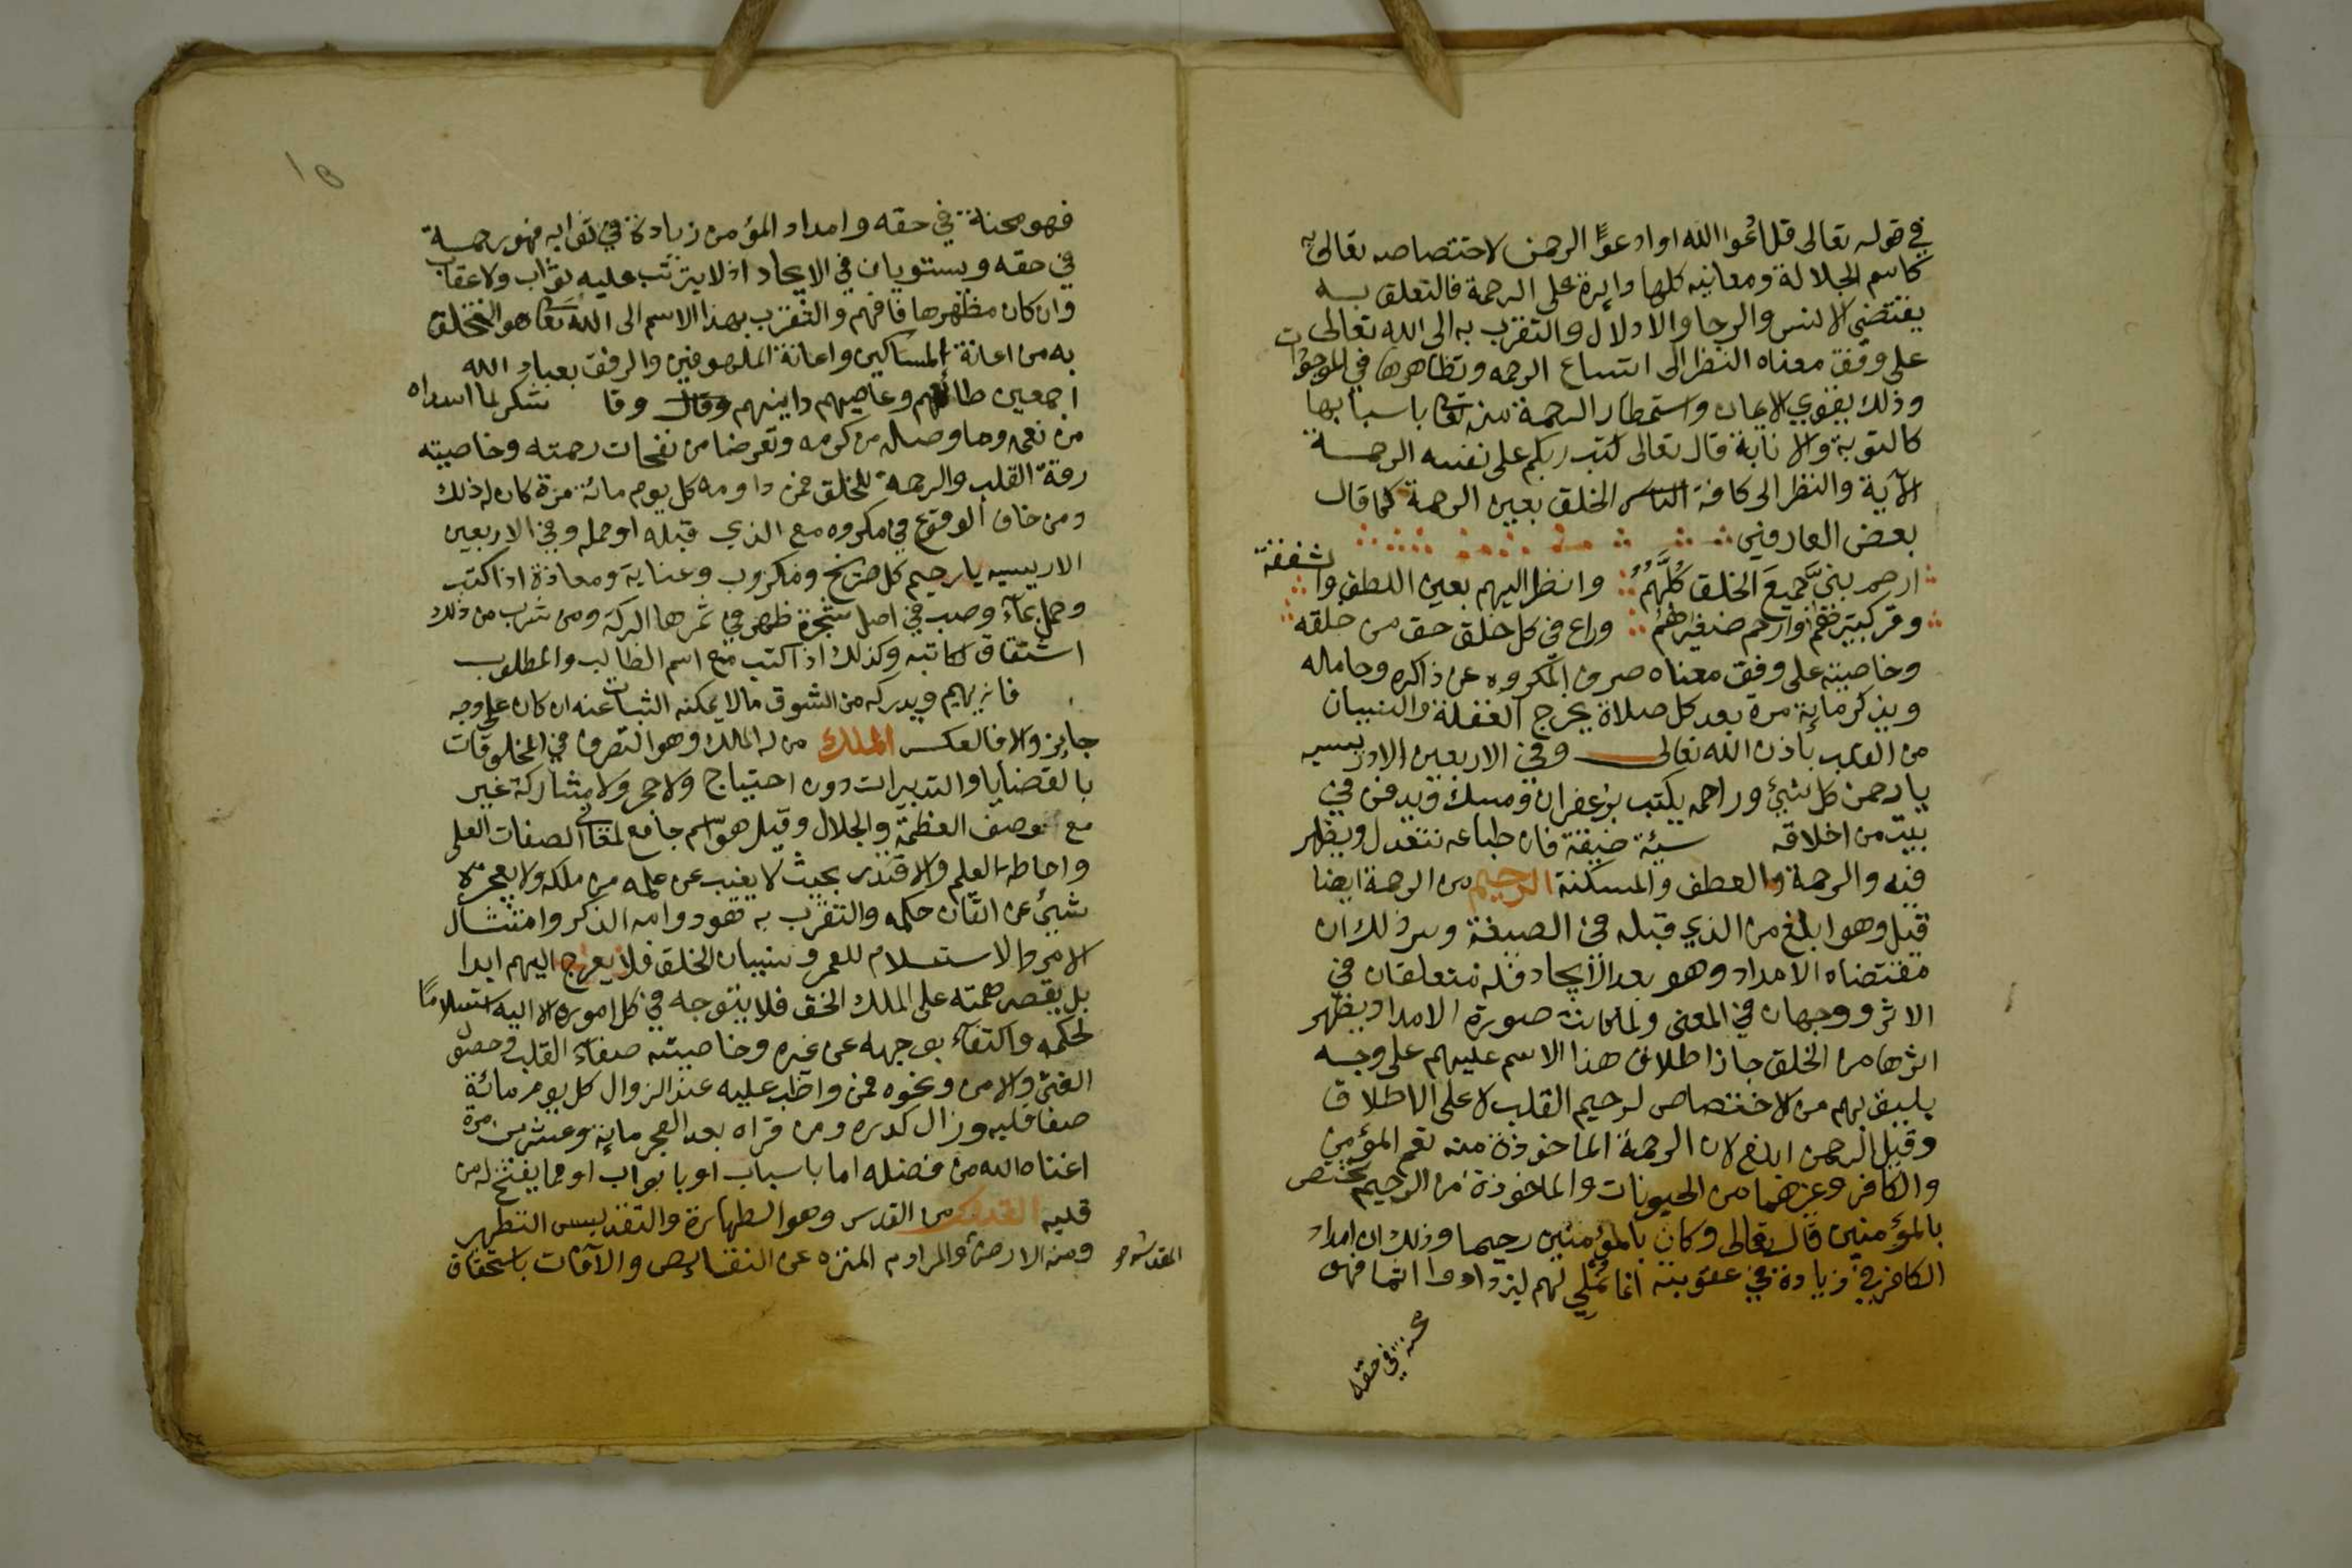 في قوله تعالى قل ادعوا الله او ادعوا الرحمن لاختصاصه تعالى به
كاسم الجلالة ومعانيه كلها دايرة على الرحمة فالتعلق به
يقتضي الانس والرجا والادلال والتقرب به الى الله تعالى
على وفق معناه النظر الى اتساع الرحمه وتظاهرها في الموجودات
وذلك يقوي الايمان واستمطار الرحمة منه تعا باسبابها
كالتوبة والانابة قال تعالى كتب ربكم على نفسه الرحمة
الآية والنظر الى كافة الناس الخلق بعين الرحمة كما قال
بعض العارفين
ارحم بني جميع الخلق كلهم وانظر اليهم بعين اللطف والشفقة
وقر كبيرهم وارحم صغيرهم وراع في كل خلق حق من خلقه
وخاصيته على وفق معناه صرف المكروه عن ذاكره وحامله
ويذكر ماية مرة بعد كل صلاة يخرج الغفلة والنسيان
من القلب باذن الله تعالى وفي الاربعين الادريسيه
يا رحمن كل شيئ وراحمه يكتب بزعفران ومسك ويدفن في
بيت من اخلاقه سيئة ضيقة فان طباعه تتعدل ويظهر
فيه والرحمة والعطف والمسكنة الرحيم من الرحمة ايضا
قيل وهو ابلغ من الذي قبله في الصيغة وسر ذلك ان
مقتضاه الامداد وهو بعد الايجاد فله متعلقان في
الاثر ووجهان في المعنى ولما كانت صورة الامداد يظهر
اثرها من الخلق جاز اطلاق هذا الاسم عليهم على وجه
يليق بهم من الاختصاص لرحيم القلب لا على الاطلاق
وقيل الرحمن ابلغ لان الرحمة الماخوذة منه تعم المؤمن
والكافر وغيرهما من الحيونات والماخوذة من الرحيم تختص
بالمؤمنين قال تعالى وكان بالمؤمنين رحيما وذلك ان امداد
الكافر في زيادة في عقوبته انما نملي لهم ليزدادوا اثما فهو
محنة في حقه
فهو محنة في حقه وامداد المؤمن زيادة في ثوابه فهو رحمة
في حقه ويستويان في الايجاد اذ لا يترتب عليه ثواب ولا عقاب
وان كان مظهرها فافهم والتقرب بهذا الاسم الى الله تعا هو التخلق
به من اعانة المساكين واعانة الملهوفين والرفق بعباد الله
اجمعين طائعهم وعاصيهم دانيهم وقال وقا شكر لما اسداه
من نعمه وما وصله من كرمه وتعرضا من نفحات رحمته وخاصيته
رقة القلب والرحمة للخلق فمن داومه كل يوم مائة مرة كان له ذلك
ومن خاف الوقوع في مكروه مع الذي قبله او حمله وفي الاربعين
الادريسيه يا رحيم كل صريخ ومكروب وغياثه ومعاذه اذا كتب
وحمل بماء وصب في اصل شجرة ظهر في ثمرها البركة ومن شرب من ذلك
اشتقاق لكاتبه وكذلك اذا كتب مع اسم الطالب والمطلوب
فانه يهيم ويدركه من الشوق مالا يمكنه الثبات عنه ان كان على وجه
جايز والا فالعكس الملك من له الملك وهو التصرف في المخلوقات
بالقضايا والتدبيرات دون احتياج ولا حجر ولا مشاركة غير
مع توصف العظمة والجلال وقيل هو اسم جامع لمعاني الصفات العلى
واحاطة العلم والاقتدر بحيث لا يغيب عن علمه من ملكه ولا يعجزه
شيئ عن اتقان حكمه والتقرب به فهو دوامه الذكر وامتثال
الامر والاستسلام للعمر ونسيان الخلق فلا يعرج اليهم ابدا
بل يقصر همته على الملك الحق فلا يتوجه في كل اموره الا اليه استسلامًا
لحكمه واكتفآء بوجهه عن غيره وخاصيته صفاء القلب وحصول
الغنى والامن ونحوه فمن واظب عليه عند الزوال كل يوم مائة
صفا قلبه وزال كدره ومن قراه بعد الفجر ماية وعشرين مرة
اغناه الله من فضله اما باسباب او بابواب او مما يفتح له من
قلبه القدوس من القدس وهو الطهارة والتقديس التطهر
ومنه الارض والمراد به المنزه عن النقايص والآفات باستحقاق
المقدسة وهو